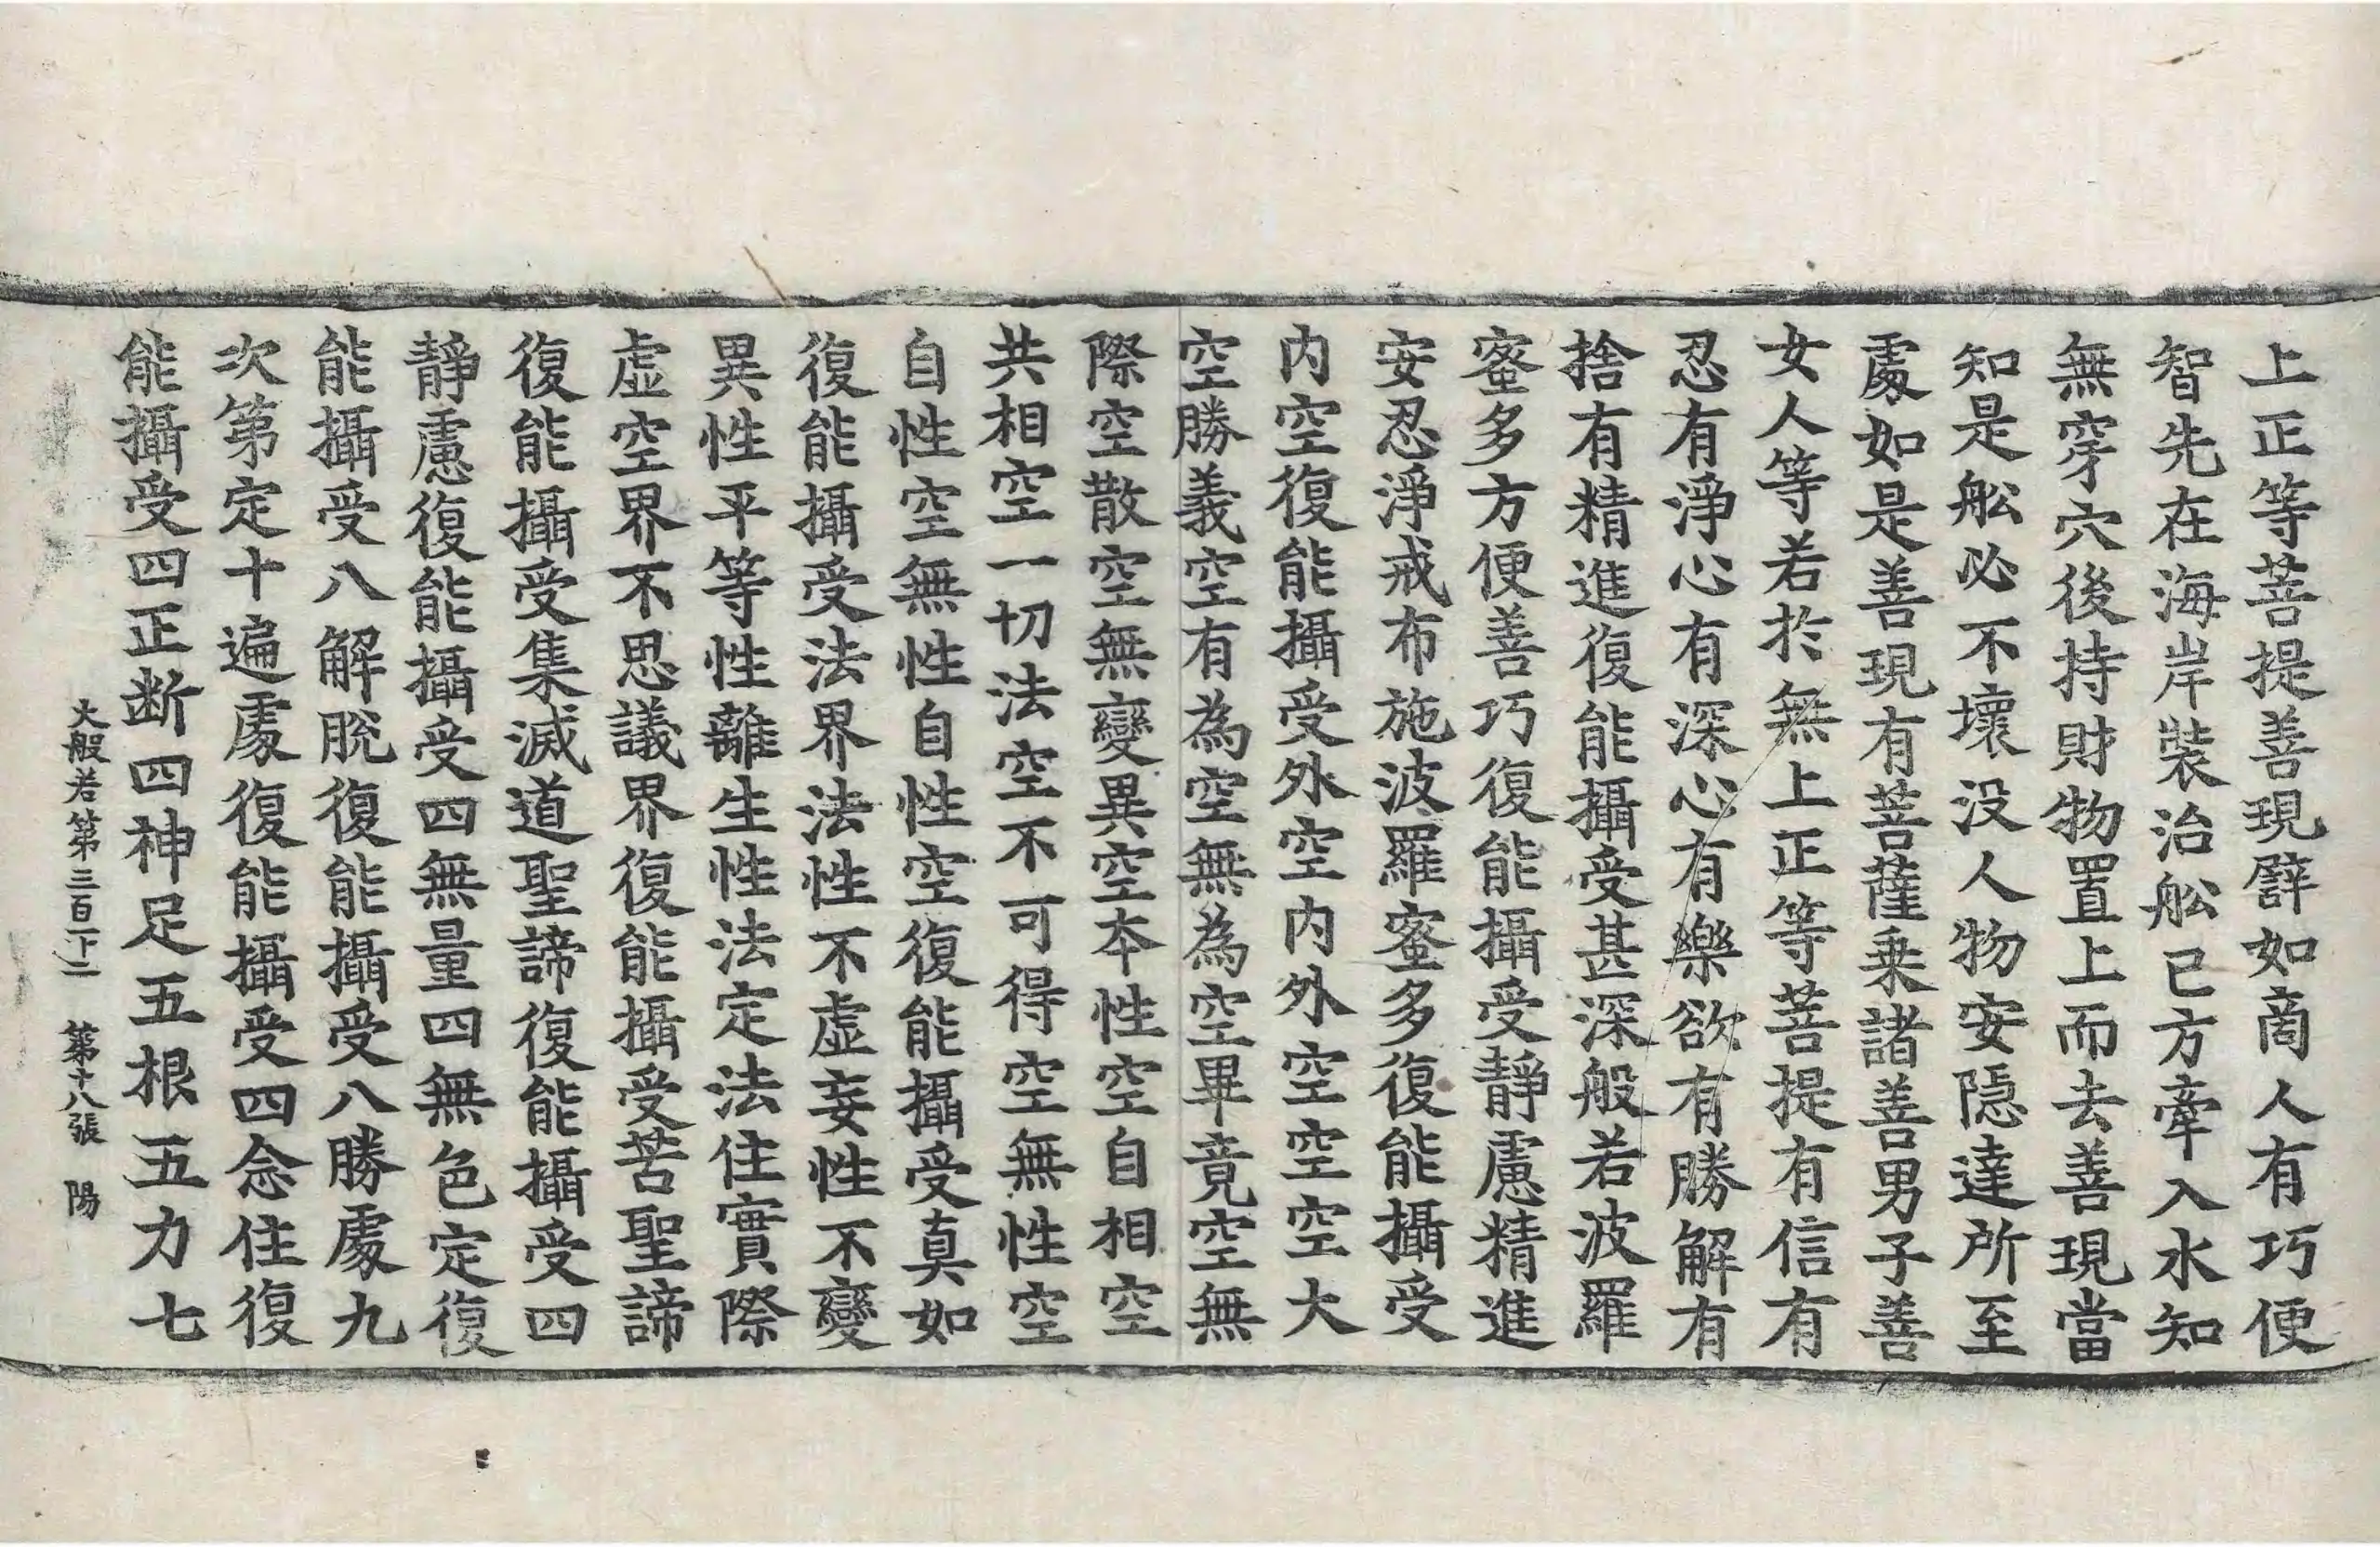 上正等菩提善現譬如啇人有巧便
智先在海岸裝治舩已方牽入水知
無穿穴後持財物置上而去善現當
知是舩必不壞没人物安隱達所至
處如是善現有菩薩乗諸善男子善
女人等若扵無上正等菩提有信有
忍有淨心有深心有樂欲有勝解有
捨有精進復能攝受甚深般若波羅
蜜多方便善巧復能攝受靜慮精進
安忍淨戒布施波羅蜜多復能攝受
内空復能攝受外空内外空空空大
空勝義空有為空無為空畢竟空無
際空散空無變異空本性空自相空
共相空一切法空不可得空無性空
自性空無性自性空復能攝受真如
復能攝受法界法性不虚妄性不變
異性平等性離生性法定法住實際
虚空界不思議界復能攝受苦聖諦
復能攝受集滅道聖諦復能攝受四
靜慮復能攝受四無量四無色定復
能攝受八解脫復能攝受八勝處九
次第定十遍處復能攝受四念住復
能攝受四正断四神足五根五力七
大般若第三百一十二 第十八張 陽